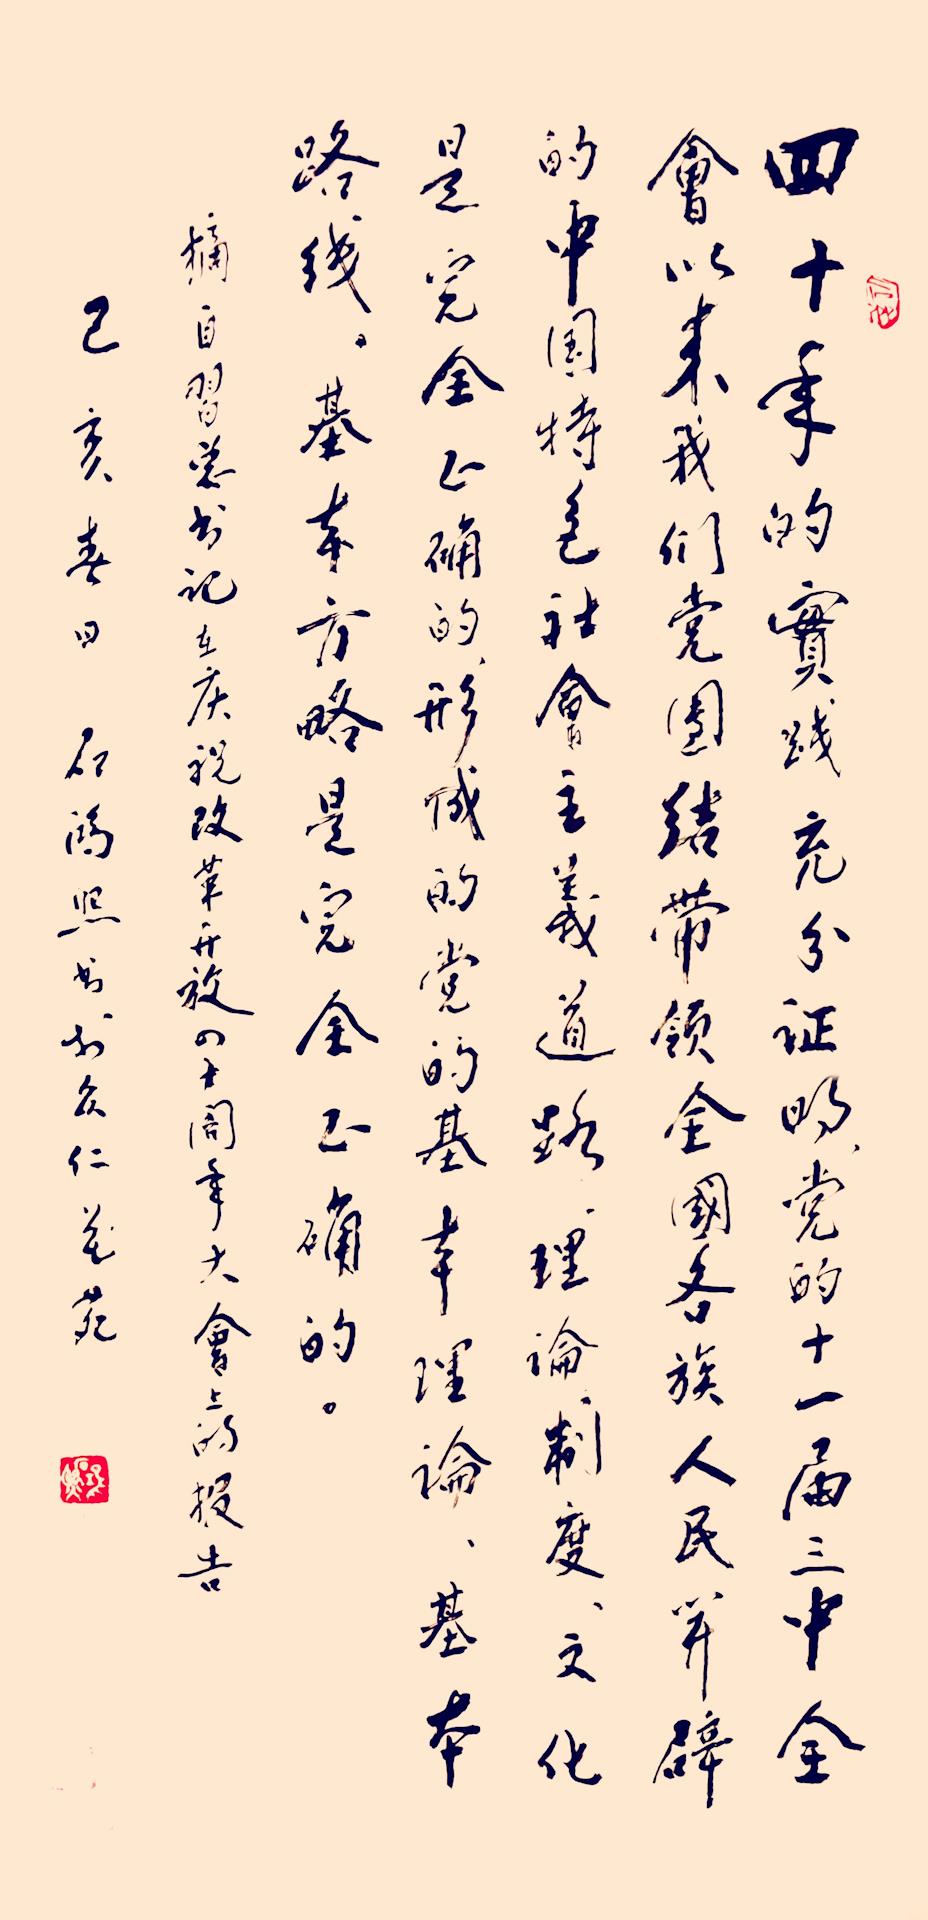 四十年的實践充分证明、党的十一届三中全
會以来我们党团结带领全國各族人民开辟
的中国特色社會主義道路、理論、制度、文化
是完全正确的、形成的党的基本理論、基本
路线。基本方略是完全正确的。
摘自習总书记在庆祝改革开放四十周年大會上的报告
己亥春日 石鸿熙书于众仁花苑